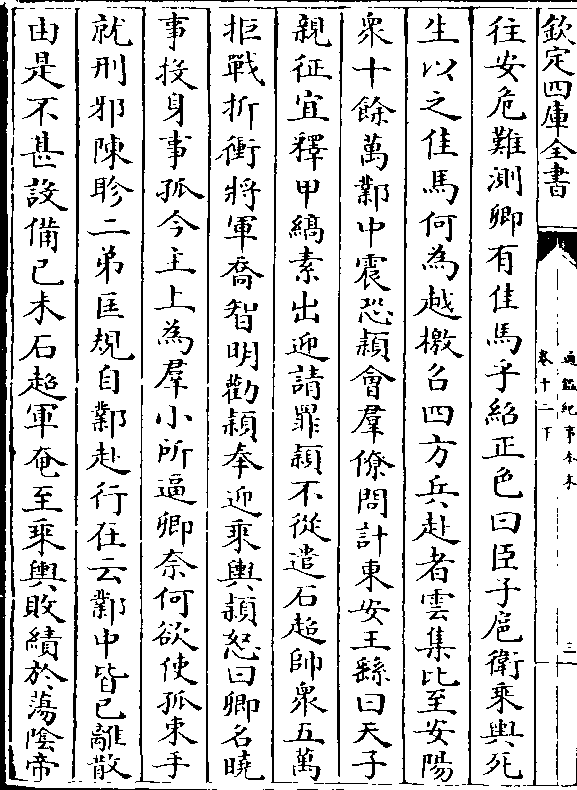 欽定四庫全書
通鑑紀事本末
卷十二下
三
往安危難測卿有佳馬乎紹正色曰臣子扈衛乘輿死
生以之佳馬何為越檄召四方兵赴者雲集比至安陽
衆十餘萬鄴中震恐穎會羣僚問計東安王繇曰天子
親征宜釋甲縞素出迎請罪穎不從遣石超帥衆五萬
拒戰折衝將軍喬智明勸穎奉迎乘輿穎怒曰卿名曉
事投身事孤今主上為羣小所逼卿奈何欲使孤束手
就刑邪陳眕二弟匡規自鄴赴行在云鄴中皆已離散
由是不甚設備己未石超軍奄至乘輿敗績於蕩陰帝